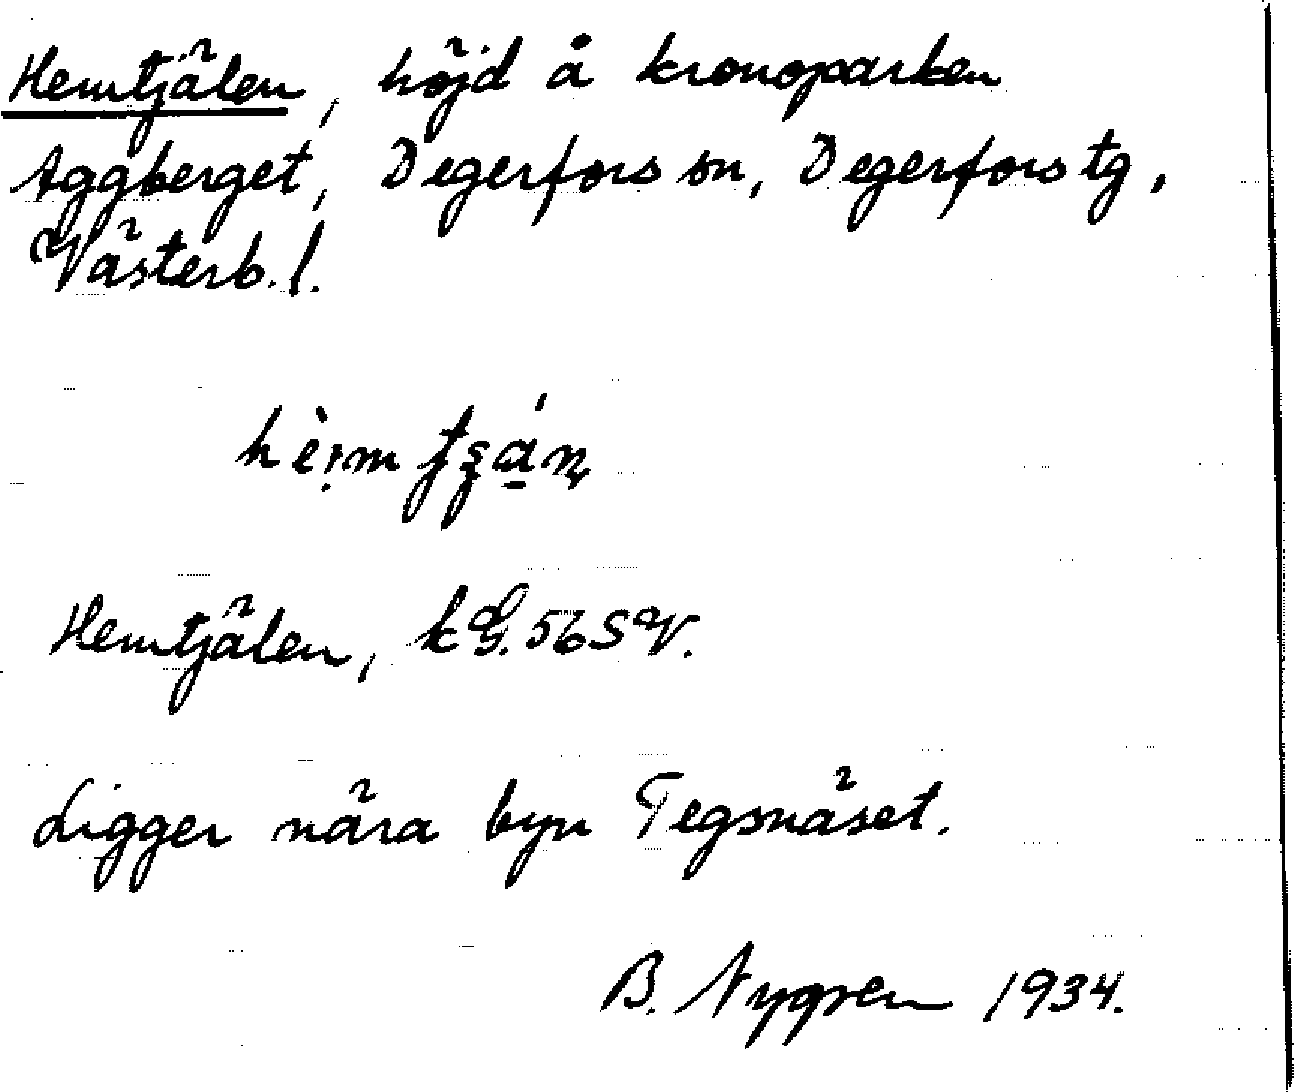 Hemtjälen, höjd å kronoparken
Aggberget, Degerfors sn, Degerfors tg,
Västerb. l.
Hemtjälen, kG. 56 SV.
Ligger nära byn Tegsnäset.
B. Nygren 1934.